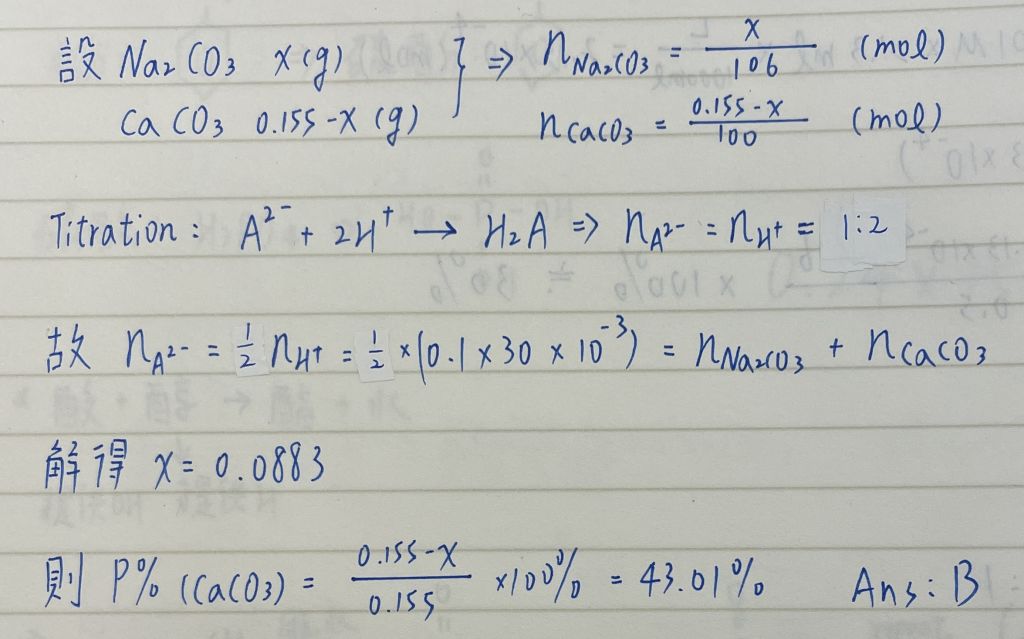 設 Na₂CO₃ x(g) } ⇒ n_Na₂CO₃ = x/106 (mol)
CaCO₃ 0.155-x (g) n_CaCO₃ = (0.155-x)/100 (mol)
Titration: A²⁻ + 2H⁺ → H₂A ⇒ n_A²⁻ : n_H⁺ = 1:2
故 n_A²⁻ = 1/2 n_H⁺ = 1/2 × (0.1 × 30 × 10⁻³) = n_Na₂CO₃ + n_CaCO₃
解得 x = 0.0883
則 P% (CaCO₃) = (0.155-x)/0.155 ×100% = 43.01% Ans: B